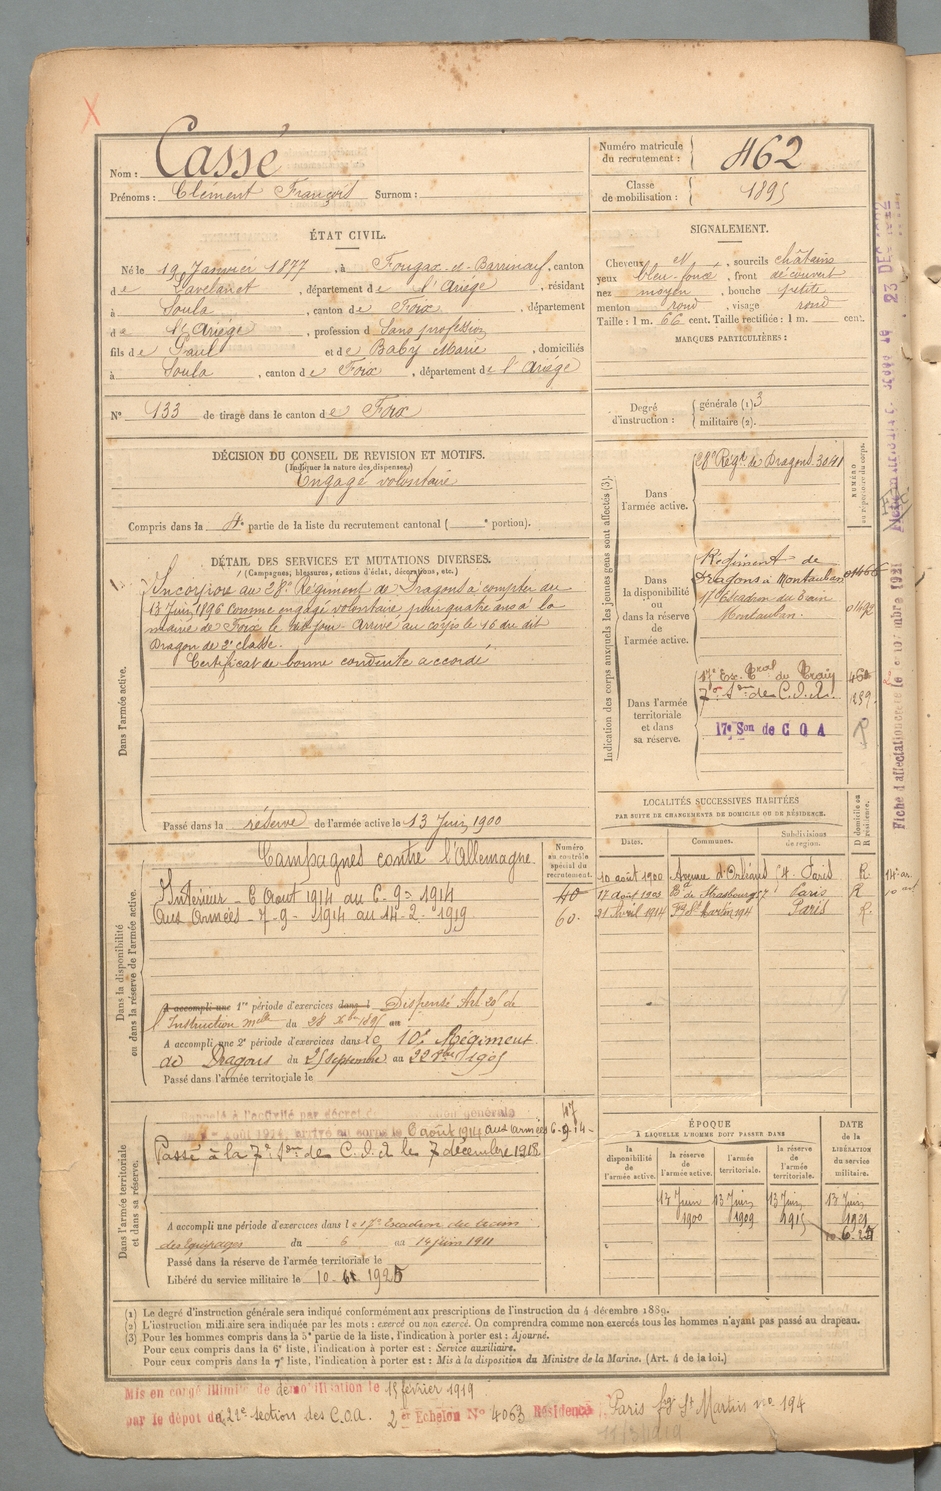 Nom : Cassé
Prénoms : Clément François Surnom :
Numéro matricule du recrutement : 462
Classe de mobilisation : 1895
ÉTAT CIVIL.
Né le 19 Janvier 1877, à Fougax-et-Barrineuf, canton
de Lavelanet, département de l'Ariège, résidant
à Soula, canton de Foix, département
de l'Ariège, profession de Sans profession
fils de Paul et de Baby Marie, domiciliés
à Soula, canton de Foix, département de l'Ariège
N° 133 de tirage dans le canton de Foix
SIGNALEMENT.
Cheveux et, sourcils châtains
yeux bleu-foncé, front découvert
nez moyen, bouche petite
menton rond, visage rond
Taille : 1 m. 66 cent. Taille rectifiée : 1 m. cent.
MARQUES PARTICULIÈRES :
Degré d'instruction : générale (1). 3
militaire (2).
DÉCISION DU CONSEIL DE REVISION ET MOTIFS.
(Indiquer la nature des dispenses)
Engagé volontaire
Compris dans la 4e partie de la liste du recrutement cantonal ( e portion).
DÉTAIL DES SERVICES ET MUTATIONS DIVERSES.
(Campagnes, blessures, actions d'éclat, décorations, etc.)
Dans l'armée active.
Incorporé au 28e Régiment de Dragons à compter du
13 Juin 1896 Comme engagé volontaire pour quatre ans à la
mairie de Foix le dit jour. Arrivé au corps le 16 du dit
Dragon de 2e classe.
Certificat de bonne conduite accordé
Passé dans la réserve de l'armée active le 13 Juin 1900
Indication des corps auxquels les jeunes gens sont affectés (3).
NUMÉRO au répertoire du corps.
Dans l'armée active.
28e Régt de Dragons 3041
Dans la disponibilité ou dans la réserve de l'armée active.
Régiment de
Dragons à Montauban 01466
17e Escadron du Train
Montauban 01492
Dans l'armée territoriale et dans sa réserve.
17e Esc. Tral du Train 460
7e Son de C.O.A. 259
17e Son de C O A R
Fiche d'affectation créée le
LOCALITÉS SUCCESSIVES HABITÉES
PAR SUITE DE CHANGEMENTS DE DOMICILE OU DE RÉSIDENCE.
Dates. Communes. Subdivisions de région. D domicile ou R résidence.
10 août 1900 Avenue d'Orléans Paris R
17 août 1903 Bd de Strasbourg 57 Paris R
21 Avril 1914 Fg St Martin 194 Paris R.
Dans la disponibilité ou dans la réserve de l'armée active.
Numéro au contrôle spécial du recrutement.
Campagnes contre l'Allemagne
Intérieur - 6 Aout 1914 au 6-9-1914 40
Aux Armées - 7-9-1914 au 14-2-1919 60.
A accompli une 1re période d'exercices dans l Dispensé Art. 29 de
l'Instruction melle du 28 Xbre 1895 au
A accompli une 2e période d'exercices dans le 10e Régiment
de Dragons du 25 septembre au 22 1905
Passé dans l'armée territoriale le
Dans l'armée territoriale et dans sa réserve.
Rappelé à l'activité par décret de mobilisation générale
août 1914, arrivé au corps le 6 août 1914 aux armées 6-9-14- 47
Passé à la 7e Son de C.O.A. le 7 décembre 1918.
A accompli une période d'exercices dans le 17e Escadron du train
des Equipages du 6 au 14 juin 1911
Passé dans la réserve de l'armée territoriale le
Libéré du service militaire le 10-6-1925
ÉPOQUE
A LAQUELLE L'HOMME DOIT PASSER DANS
la disponibilité de l'armée active. la réserve de l'armée active. l'armée territoriale. la réserve de l'armée territoriale.
DATE de la LIBÉRATION du service militaire.
13 Juin 1900 13 Juin 1909 13 Juin 1915 13 Juin 1921
10-6-25
(1) Le degré d'instruction générale sera indiqué conformément aux prescriptions de l'instruction du 4 décembre 1889.
(2) L'instruction militaire sera indiquée par les mots : exercé ou non exercé. On comprendra comme non exercés tous les hommes n'ayant pas passé au drapeau.
(3) Pour les hommes compris dans la 5e partie de la liste, l'indication à porter est : Ajourné.
Pour ceux compris dans la 6e liste, l'indication à porter est : Service auxiliaire.
Pour ceux compris dans la 7e liste, l'indication à porter est : Mis à la disposition du Ministre de la Marine. (Art. 4 de la loi.)
Mis en congé illimité de démobilisation le 15 février 1919
par le dépôt de 22e section des C.O.A. 2er Echelon N° 4063 Résidence Paris fg St Martin no 194
11/3/1919